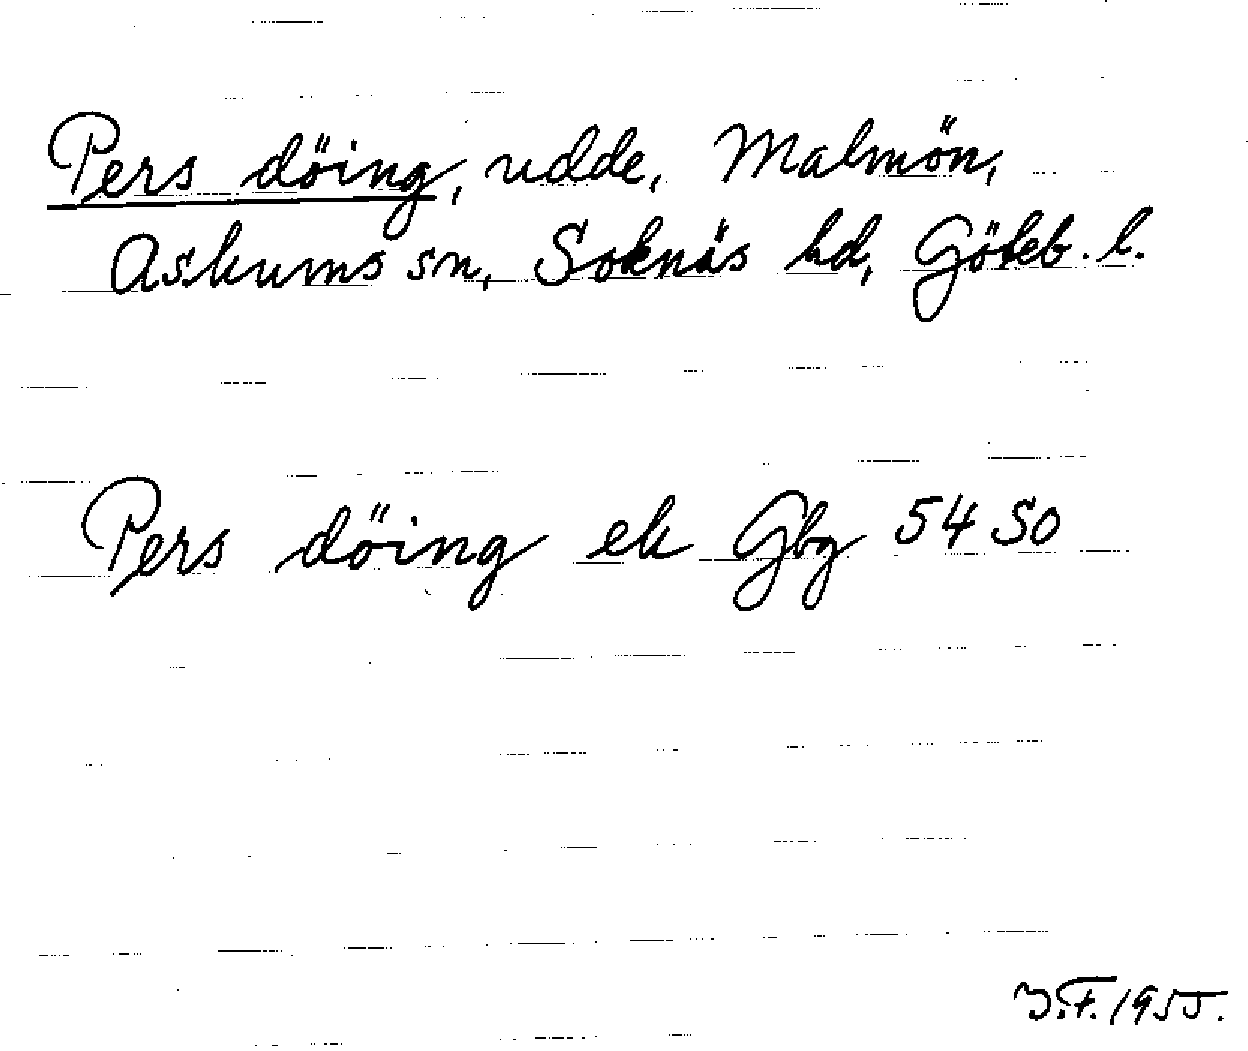 Pers döing, udde, Malmön,
Askums sn, Soknäs hd, Göteb. l.
Pers döing ek Gbg 54 SO
F. 1955.